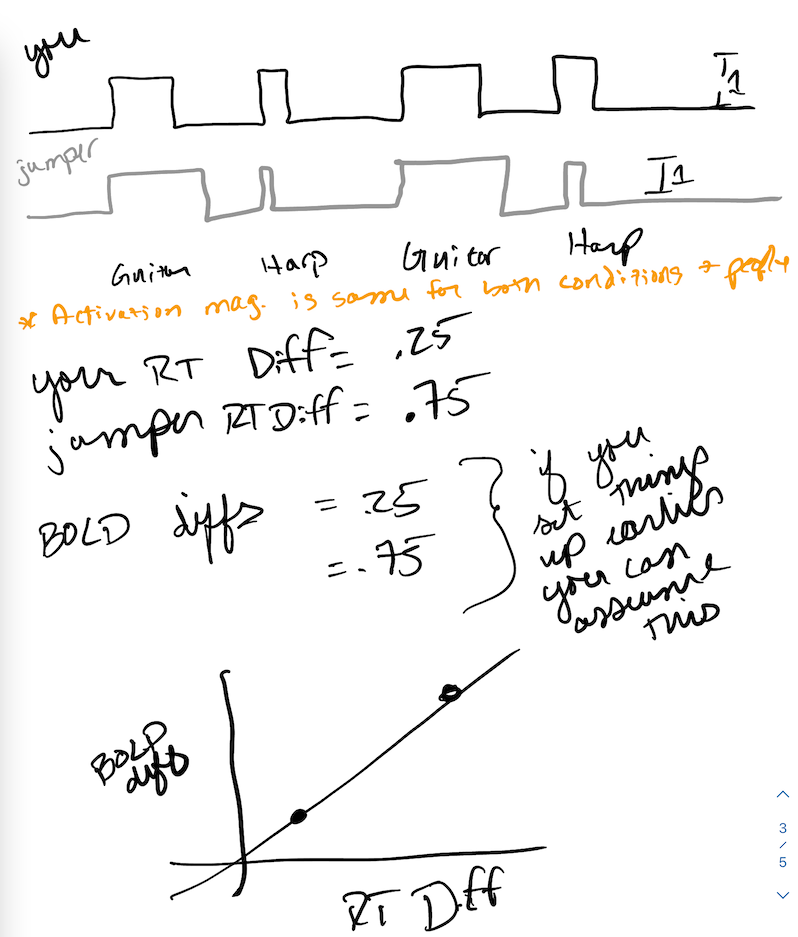 you
T1
jumper
I1
Guitar Harp Guitar Harp
* Activation mag. is same for both conditions + people
your RT Diff = .25
jumper RT Diff = .75
BOLD diffs = .25
= .75
if you
set things
up earlier
you can
assume
this
BOLD
diff
RT Diff
3
/
5